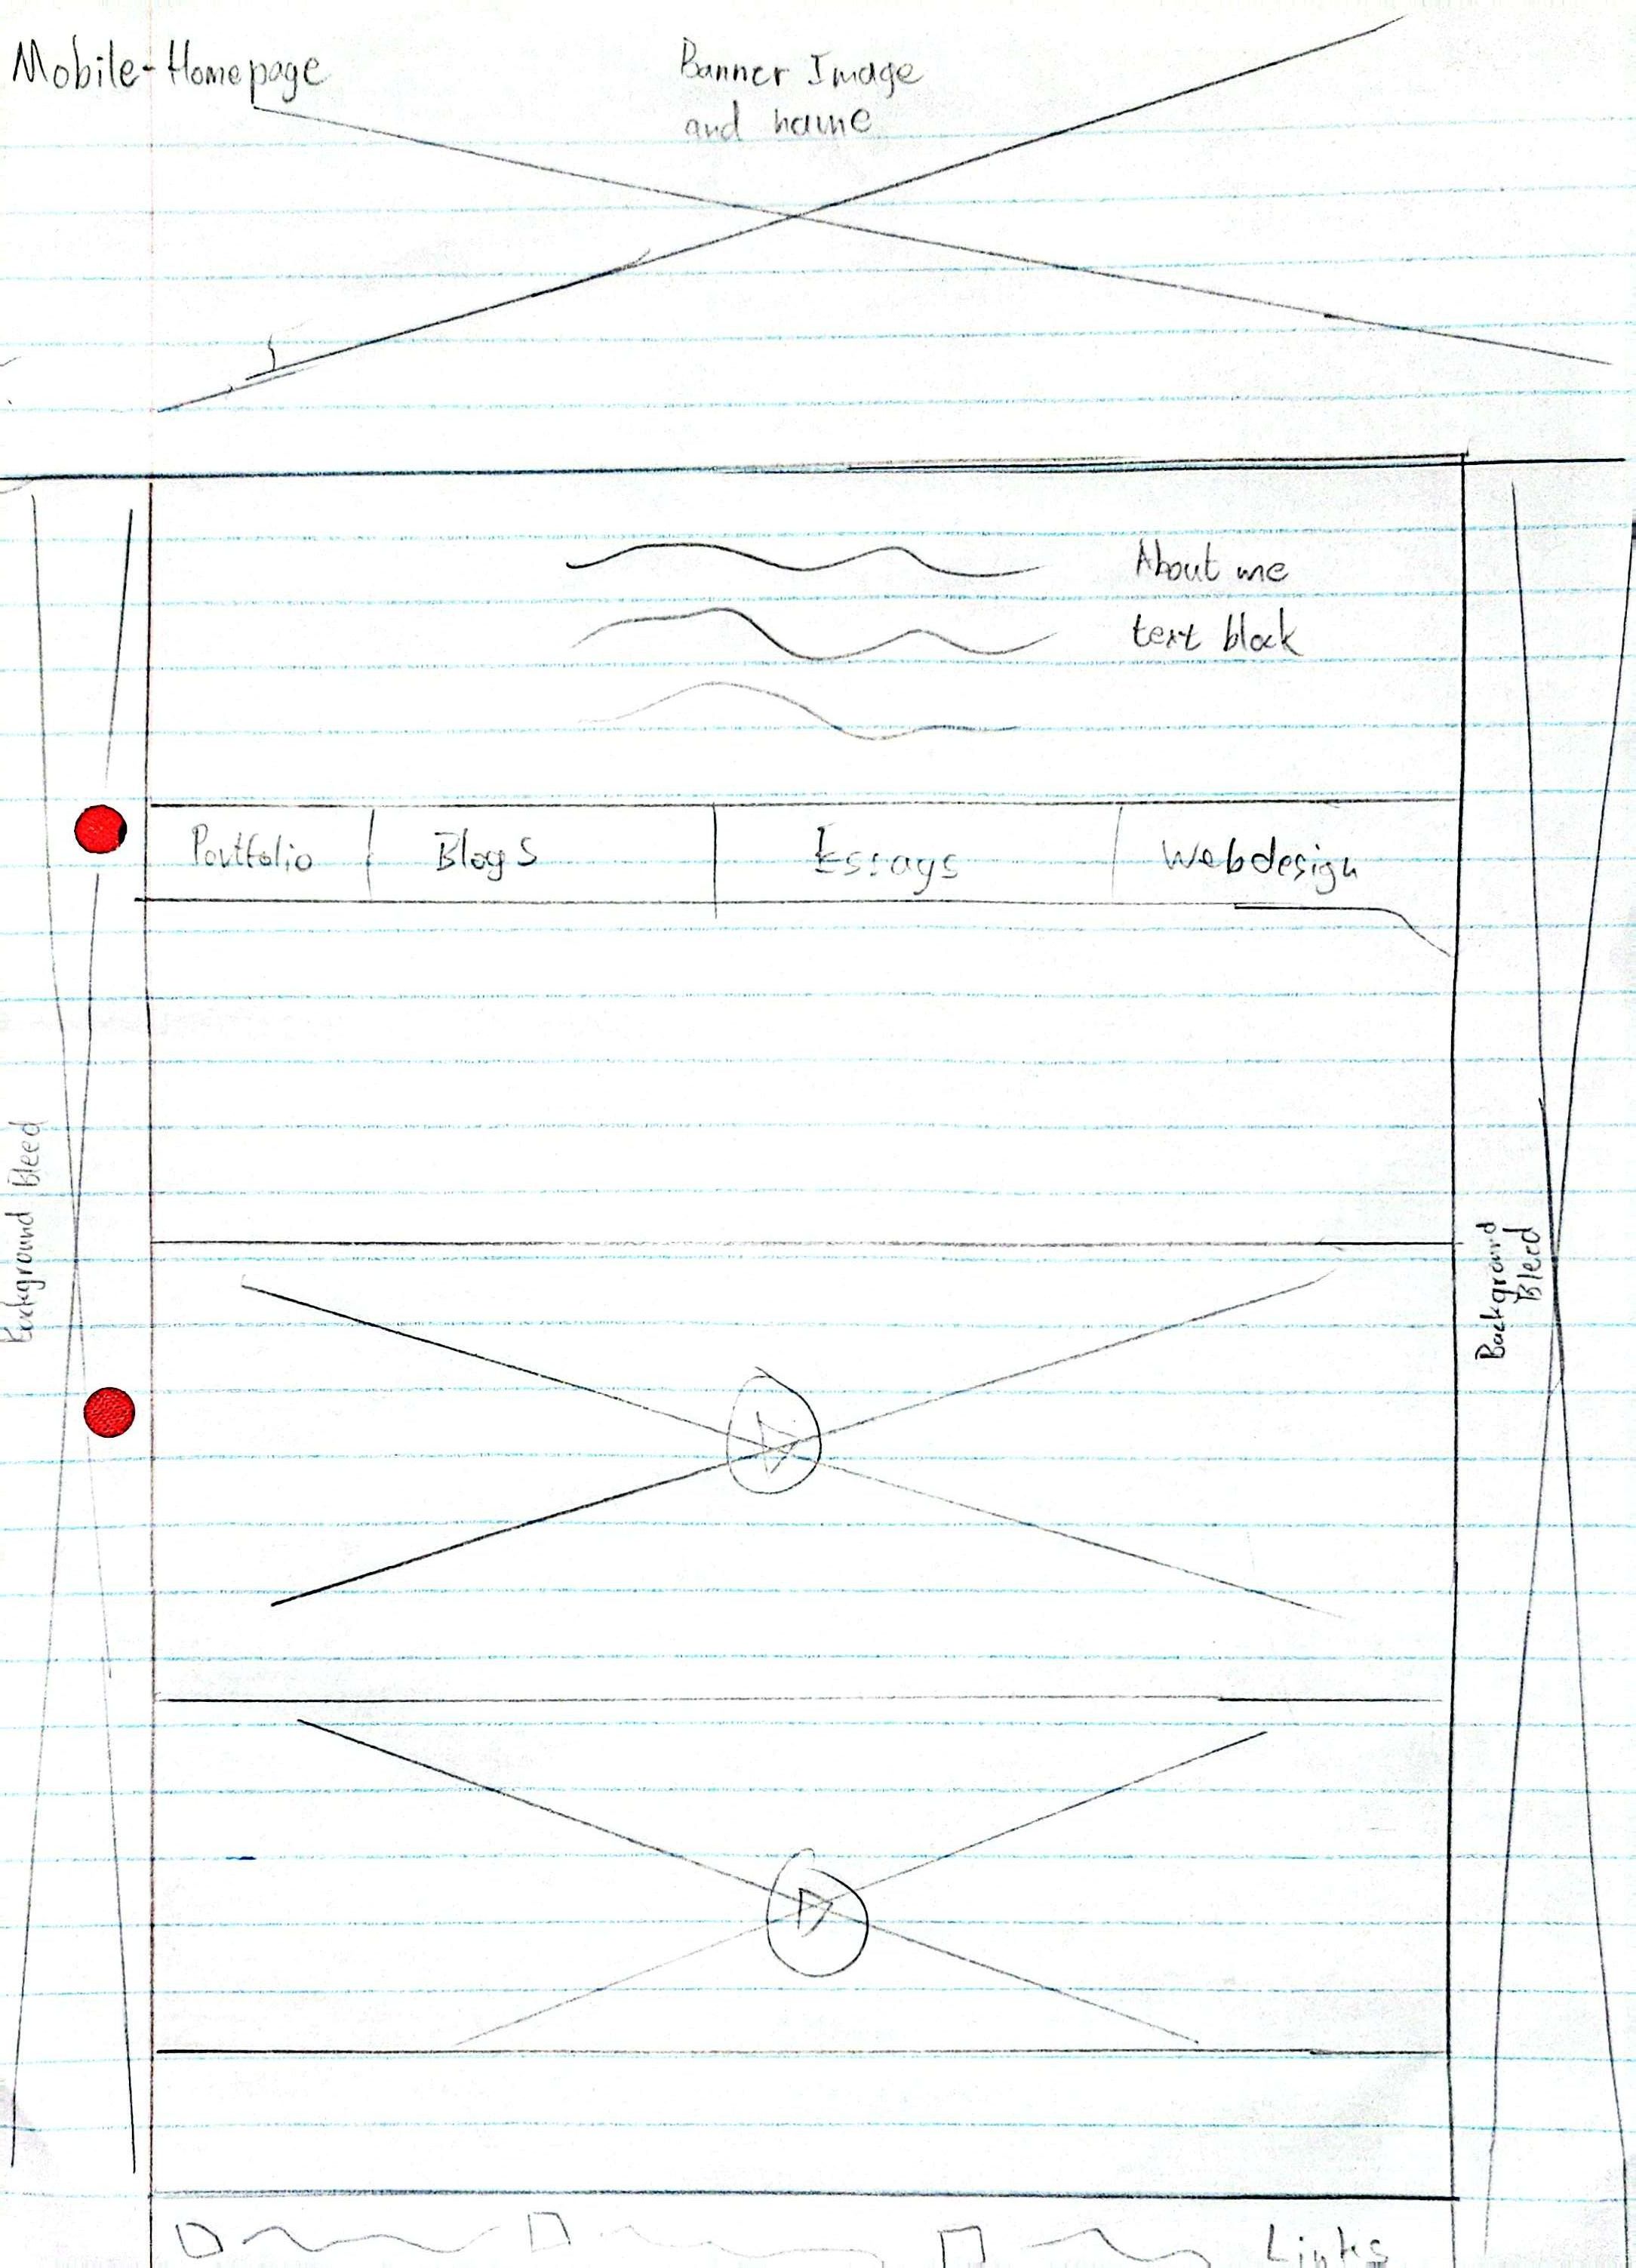 Mobile-Homepage
Banner Image
and name
About me
text block
Portfolio
Blogs
Essays
Webdesign
Background Bleed
Background
Bleed
Links